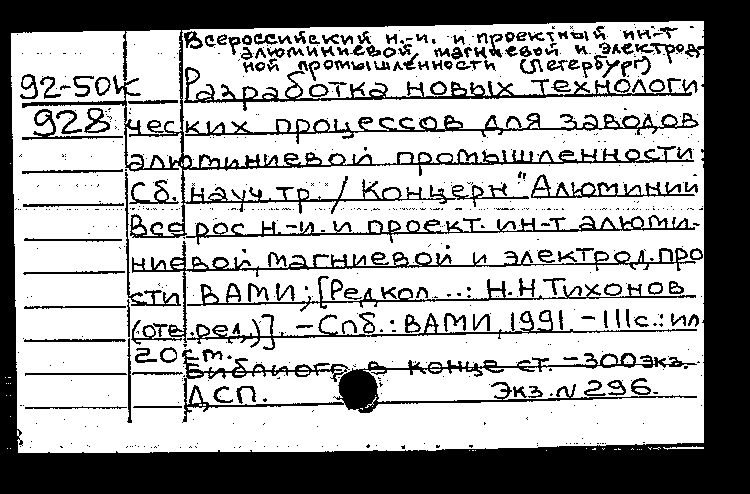 Всероссийский н.-и. и проектный ин-т
алюминиевой, магниевой и электрод-
ной промышленности (Петербург)
92-50к Разработка новых технологи-
928 ческих процессов для заводов
алюминиевой промышленности:
Сб. науч. тр. / Концерн "Алюминий
Всерос н.-и. и проект. ин-т алюми-
ниевой, магниевой и электрод. про
сти ВАМИ; [Редкол...: Н.Н. Тихонов
(отв. ред.)]. - Спб.: ВАМИ, 1991. - 111с.: ил
20 см.
Библиогр. в конце ст. - 300 экз.
ДСП. Экз. N 296.